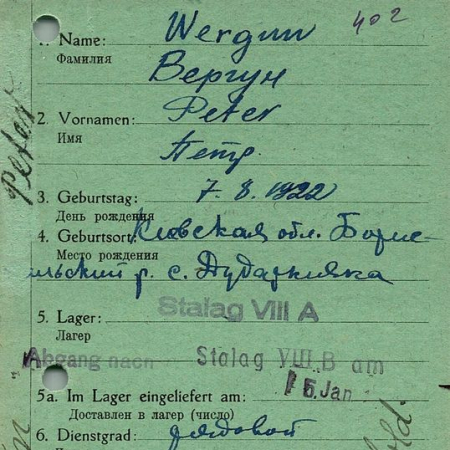 402
1. Name: Wergun
Фамилия
Вергун
2. Vornamen: Peter
Имя
Петр.
3. Geburtstag: 7. 8. 1922
День рождения
4. Geburtsort: Киевская обл. Борис-
Место рождения
льский р. с. Дударкивка
Stalag VIII A
5. Lager:
Лагер
Abgang nach Stalag VIII B am
15. Jan.
5a. Im Lager eingeliefert am:
Доставлен в лагер (число)
6. Dienstgrad: рядовой
Peter